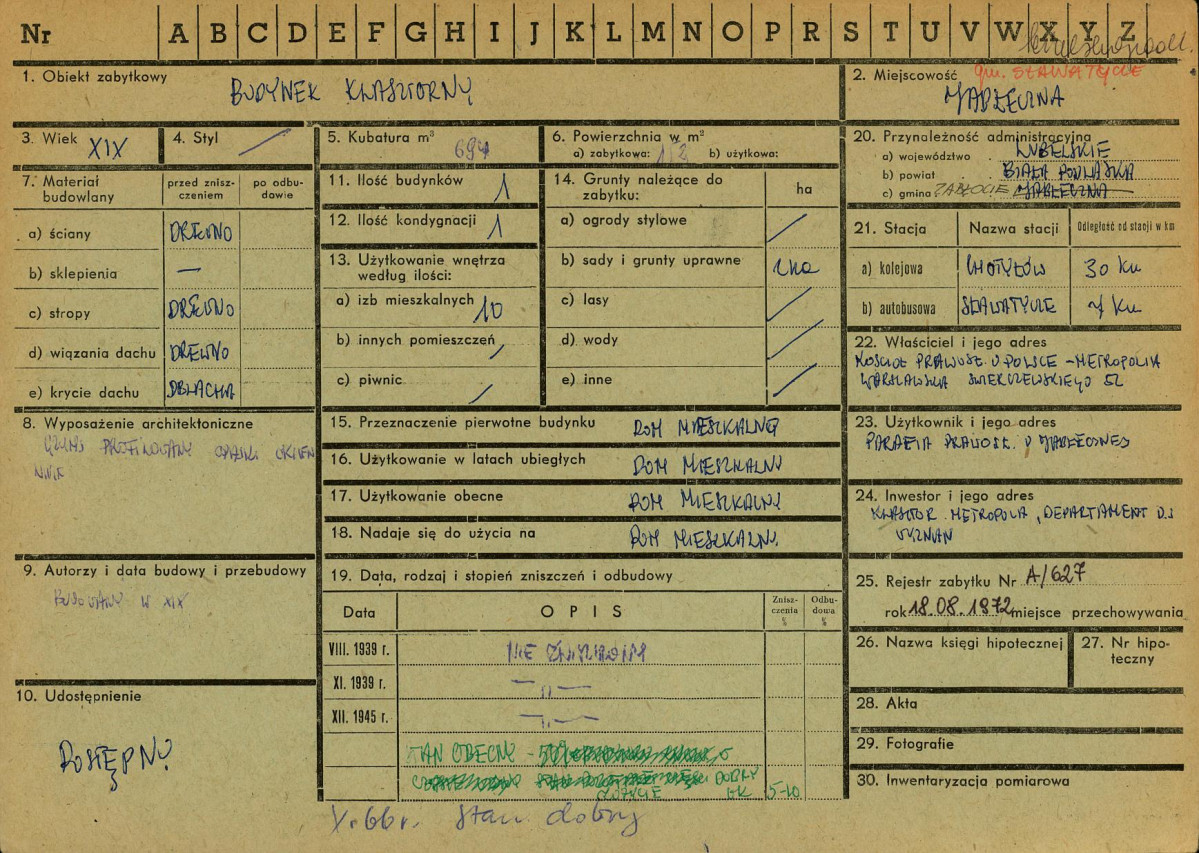 Nr A B C D E F G H I J K L M N O P R S T U V W X Y Z
1. Obiekt zabytkowy
BUDYNEK KLASZTORNY
2. Miejscowość gm. SŁAWATYCZE
JABŁECZNA
3. Wiek XIX
4. Styl
5. Kubatura m³ 694
6. Powierzchnia w m²
a) zabytkowa: b) użytkowa:
7. Materiał budowlany
przed zniszczeniem
po odbudowie
a) ściany DREWNO
b) sklepienia —
c) stropy DREWNO
d) wiązania dachu DREWNO
e) krycie dachu BLACHA
8. Wyposażenie architektoniczne
PROFILOWANY
9. Autorzy i data budowy i przebudowy
BUDOWANY W XIX
10. Udostępnienie
DOSTĘPNY
11. Ilość budynków 1
12. Ilość kondygnacji 1
13. Użytkowanie wnętrza
według ilości:
a) izb mieszkalnych 10
b) innych pomieszczeń
c) piwnic
14. Grunty należące do
zabytku:
ha
a) ogrody stylowe
b) sady i grunty uprawne
c) lasy
d) wody
e) inne
15. Przeznaczenie pierwotne budynku DOM MIESZKALNY
16. Użytkowanie w latach ubiegłych DOM MIESZKALNY
17. Użytkowanie obecne DOM MIESZKALNY
18. Nadaje się do użycia na DOM MIESZKALNY
19. Data, rodzaj i stopień zniszczeń i odbudowy
Data OPIS Zniszczenia % Odbudowa %
VIII. 1939 r. NIE ZNISZCZONY
XI. 1939 r. — „ —
XII. 1945 r. — „ —
STAN OBECNY -
DOBRY
ZUŻYCIE 5-10
X. 66 r. Stan dobry
20. Przynależność administracyjna
a) województwo LUBELSKIE
b) powiat BIAŁA PODLASKA
c) gmina ZABŁOCIE JABŁECZNA
21. Stacja Nazwa stacji Odległość od stacji w km
a) kolejowa CHOTYŁÓW 30 km
b) autobusowa SŁAWATYCZE 7 km
22. Właściciel i jego adres
KOŚCIÓŁ PRAWOSŁ. W POLSCE - METROPOLIA
WARSZAWSKA ŚWIERCZEWSKIEGO 52
23. Użytkownik i jego adres
PARAFIA PRAWOSŁ. W JABŁECZNEJ
24. Inwestor i jego adres
KLASZTOR. METROPOLIA, DEPARTAMENT D.S
WYZNAŃ
25. Rejestr zabytku Nr A/627
rok 18.08.1972 miejsce przechowywania
26. Nazwa księgi hipotecznej
27. Nr hipoteczny
28. Akta
29. Fotografie
30. Inwentaryzacja pomiarowa